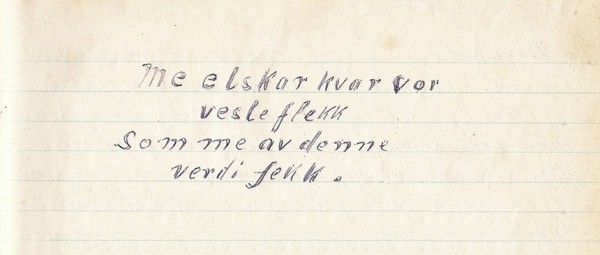 Me elskar kvar vor
vesle flekk
Som me av denne
verdi fekk.